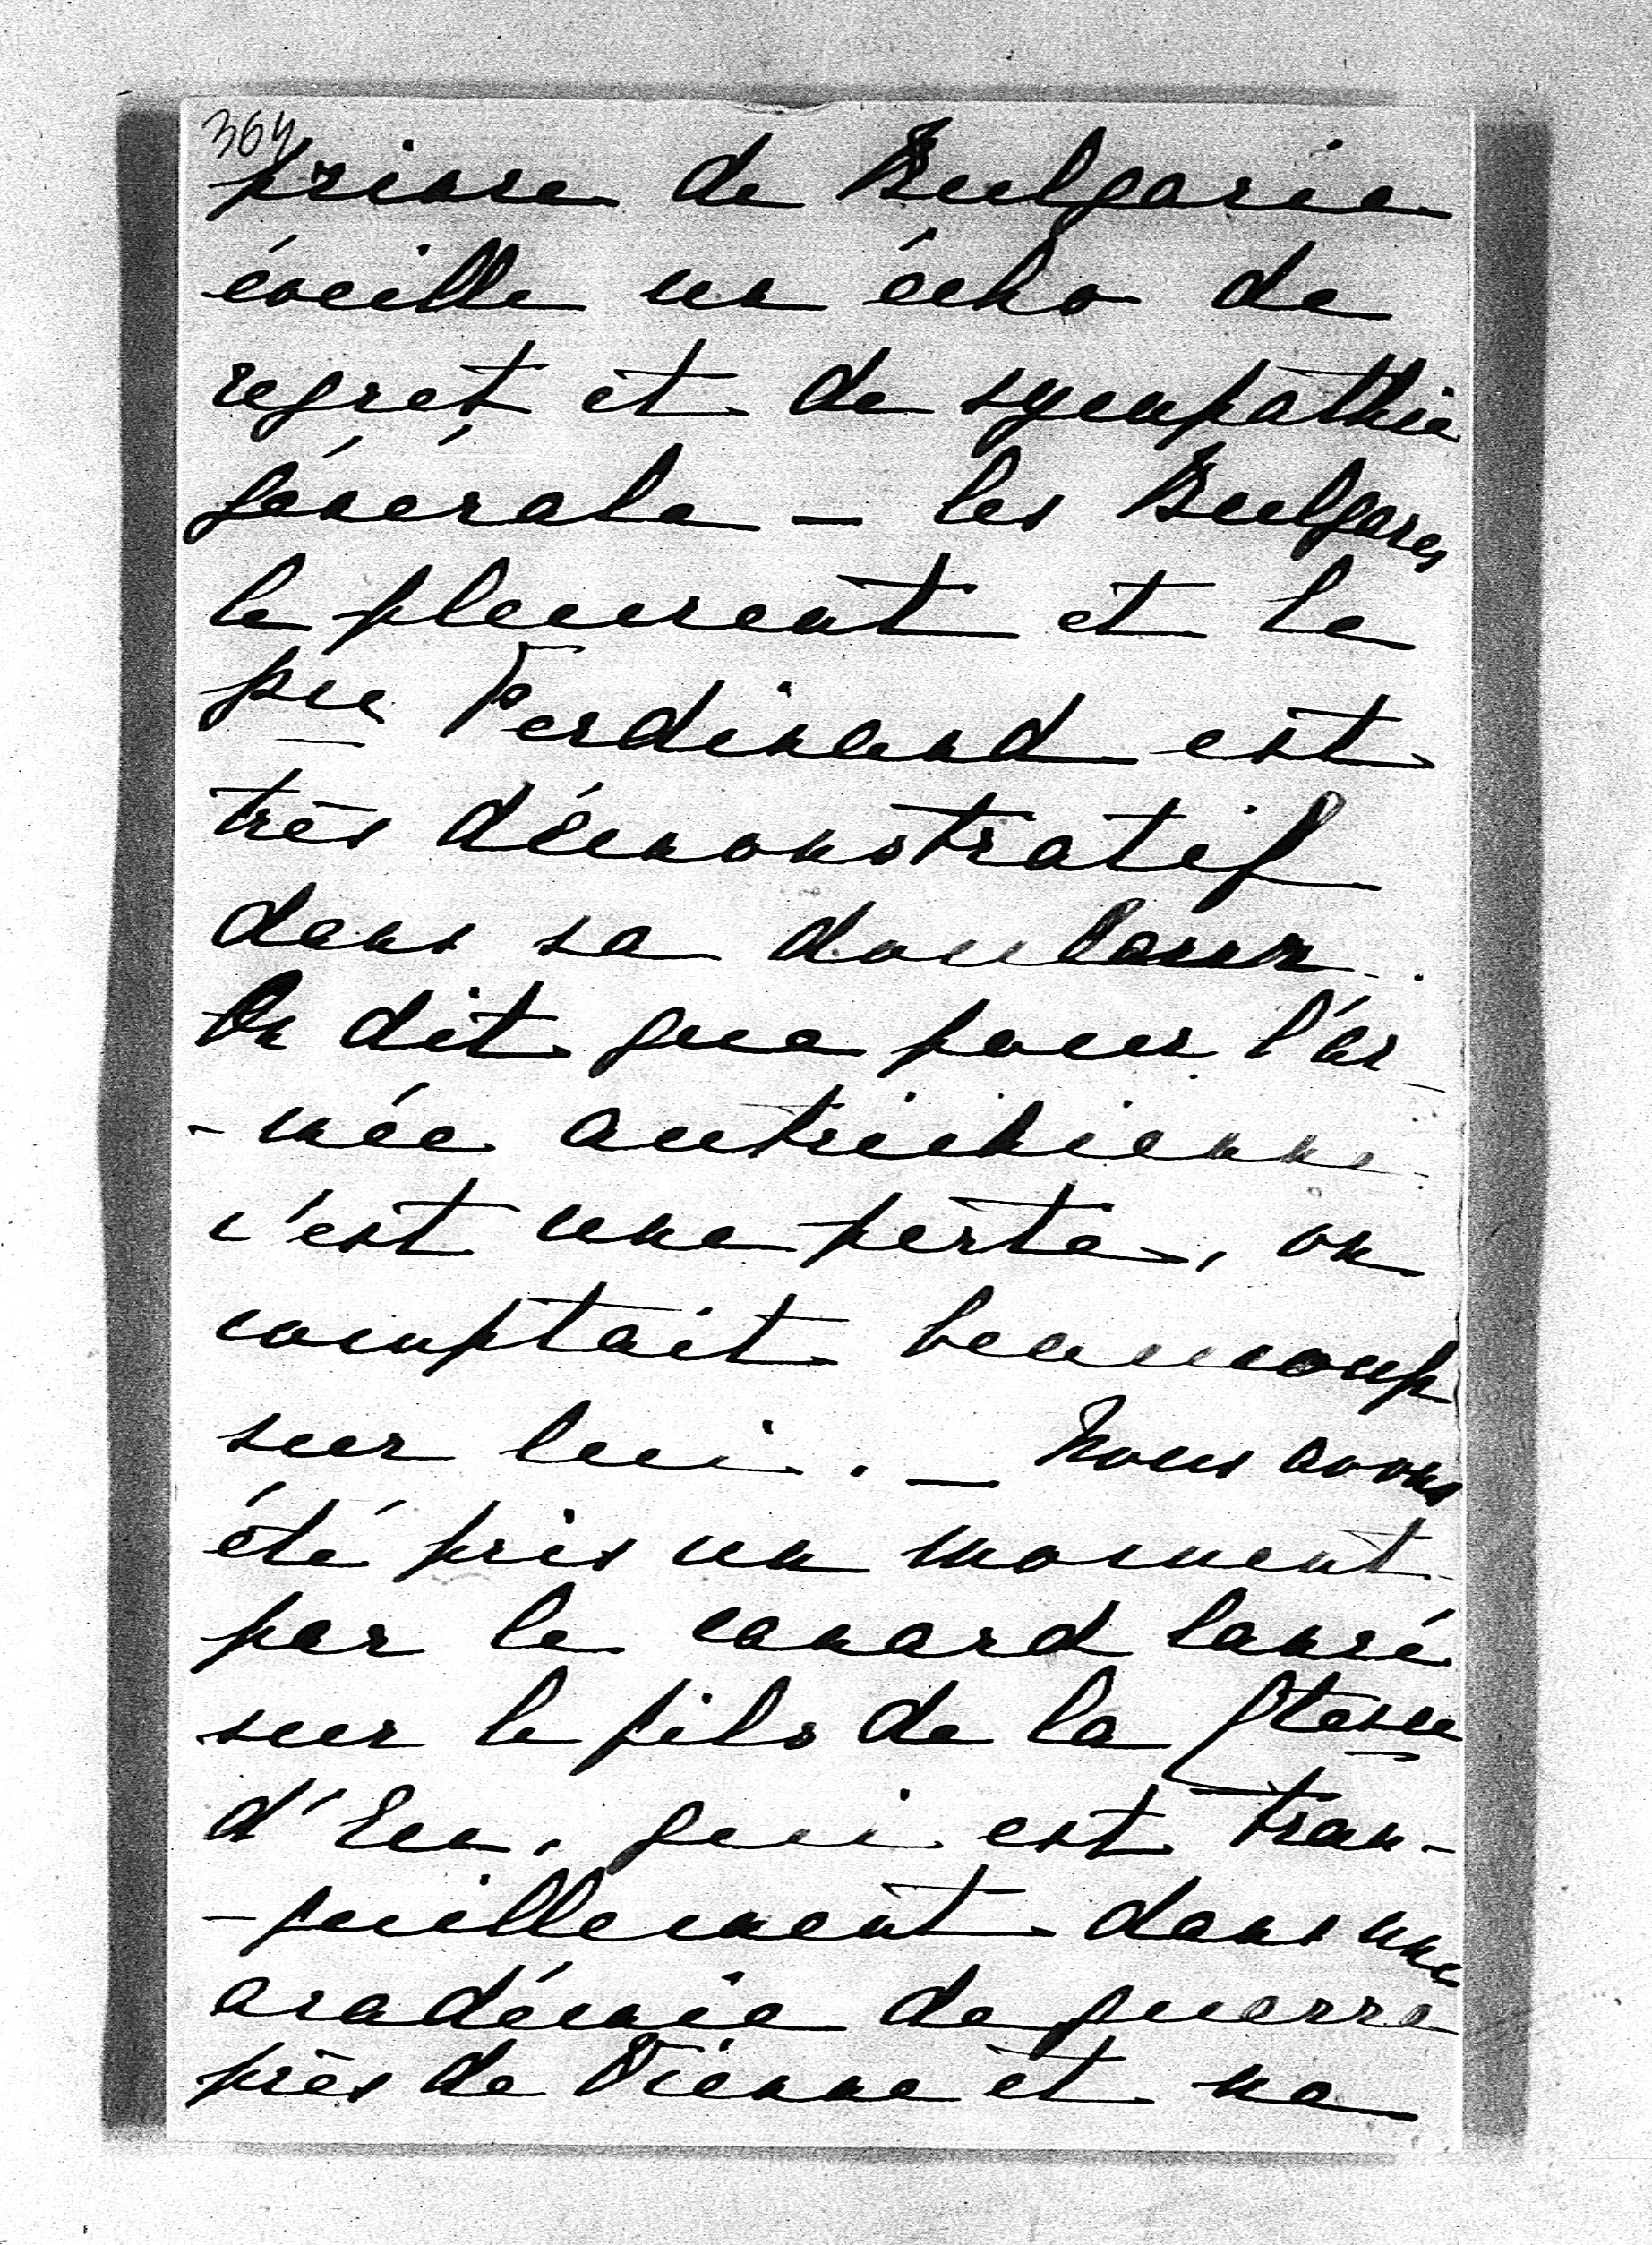 364
prince de Bulgarie
éveille un écho de
regret et de sympathie
générale – les Bulgares
le pleurent et le
pce Ferdinand est
très démonstratif
dans sa douleur.
On dit que pour l'ar-
-mée autrichienne
c'est une perte, on
comptait beaucoup
sur lui. – Nous avons
été pris un moment
par le canard lancé
sur le fils de la Ctesse
d'Eu, qui est tran-
-quillement dans une
académie de guerre
près de Vienne et ne